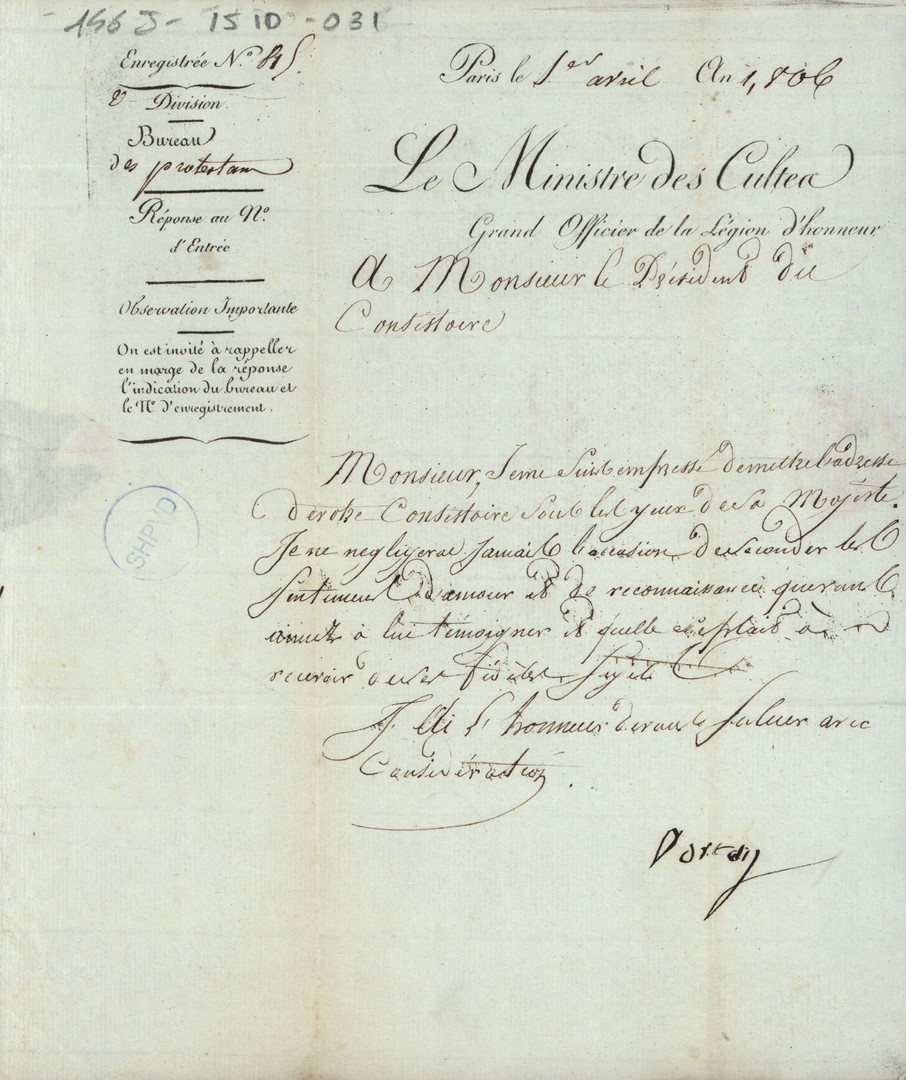 156 J - 15 10 - 031
Enregistrée N.º 815
Paris le 1er avril An 1,806
2 Division.
Bureau
des protestans
Le Ministre des Cultes
Réponse au Nº.
d'Entrée
Grand Officier de la Légion d'honneur
A Monsieur le Président du
Consistoire
Observation Importante
On est invité à rappeller
en marge de la réponse
l'indication du bureau et
le Nº d'enregistrement.
Monsieur, Je me suis empressé de mettre l'adresse
de votre Consistoire sous les yeux de sa Majesté.
Je ne negligerai jamais l'occasion de seconder les
sentimens d'amour et de reconnaissance que vous
aimez à lui témoigner et quelle se plait à
recevoir de ses fidèles Sujets
J'ai l'honneur de vous saluer avec
Considération.
Portalis
SHPVD